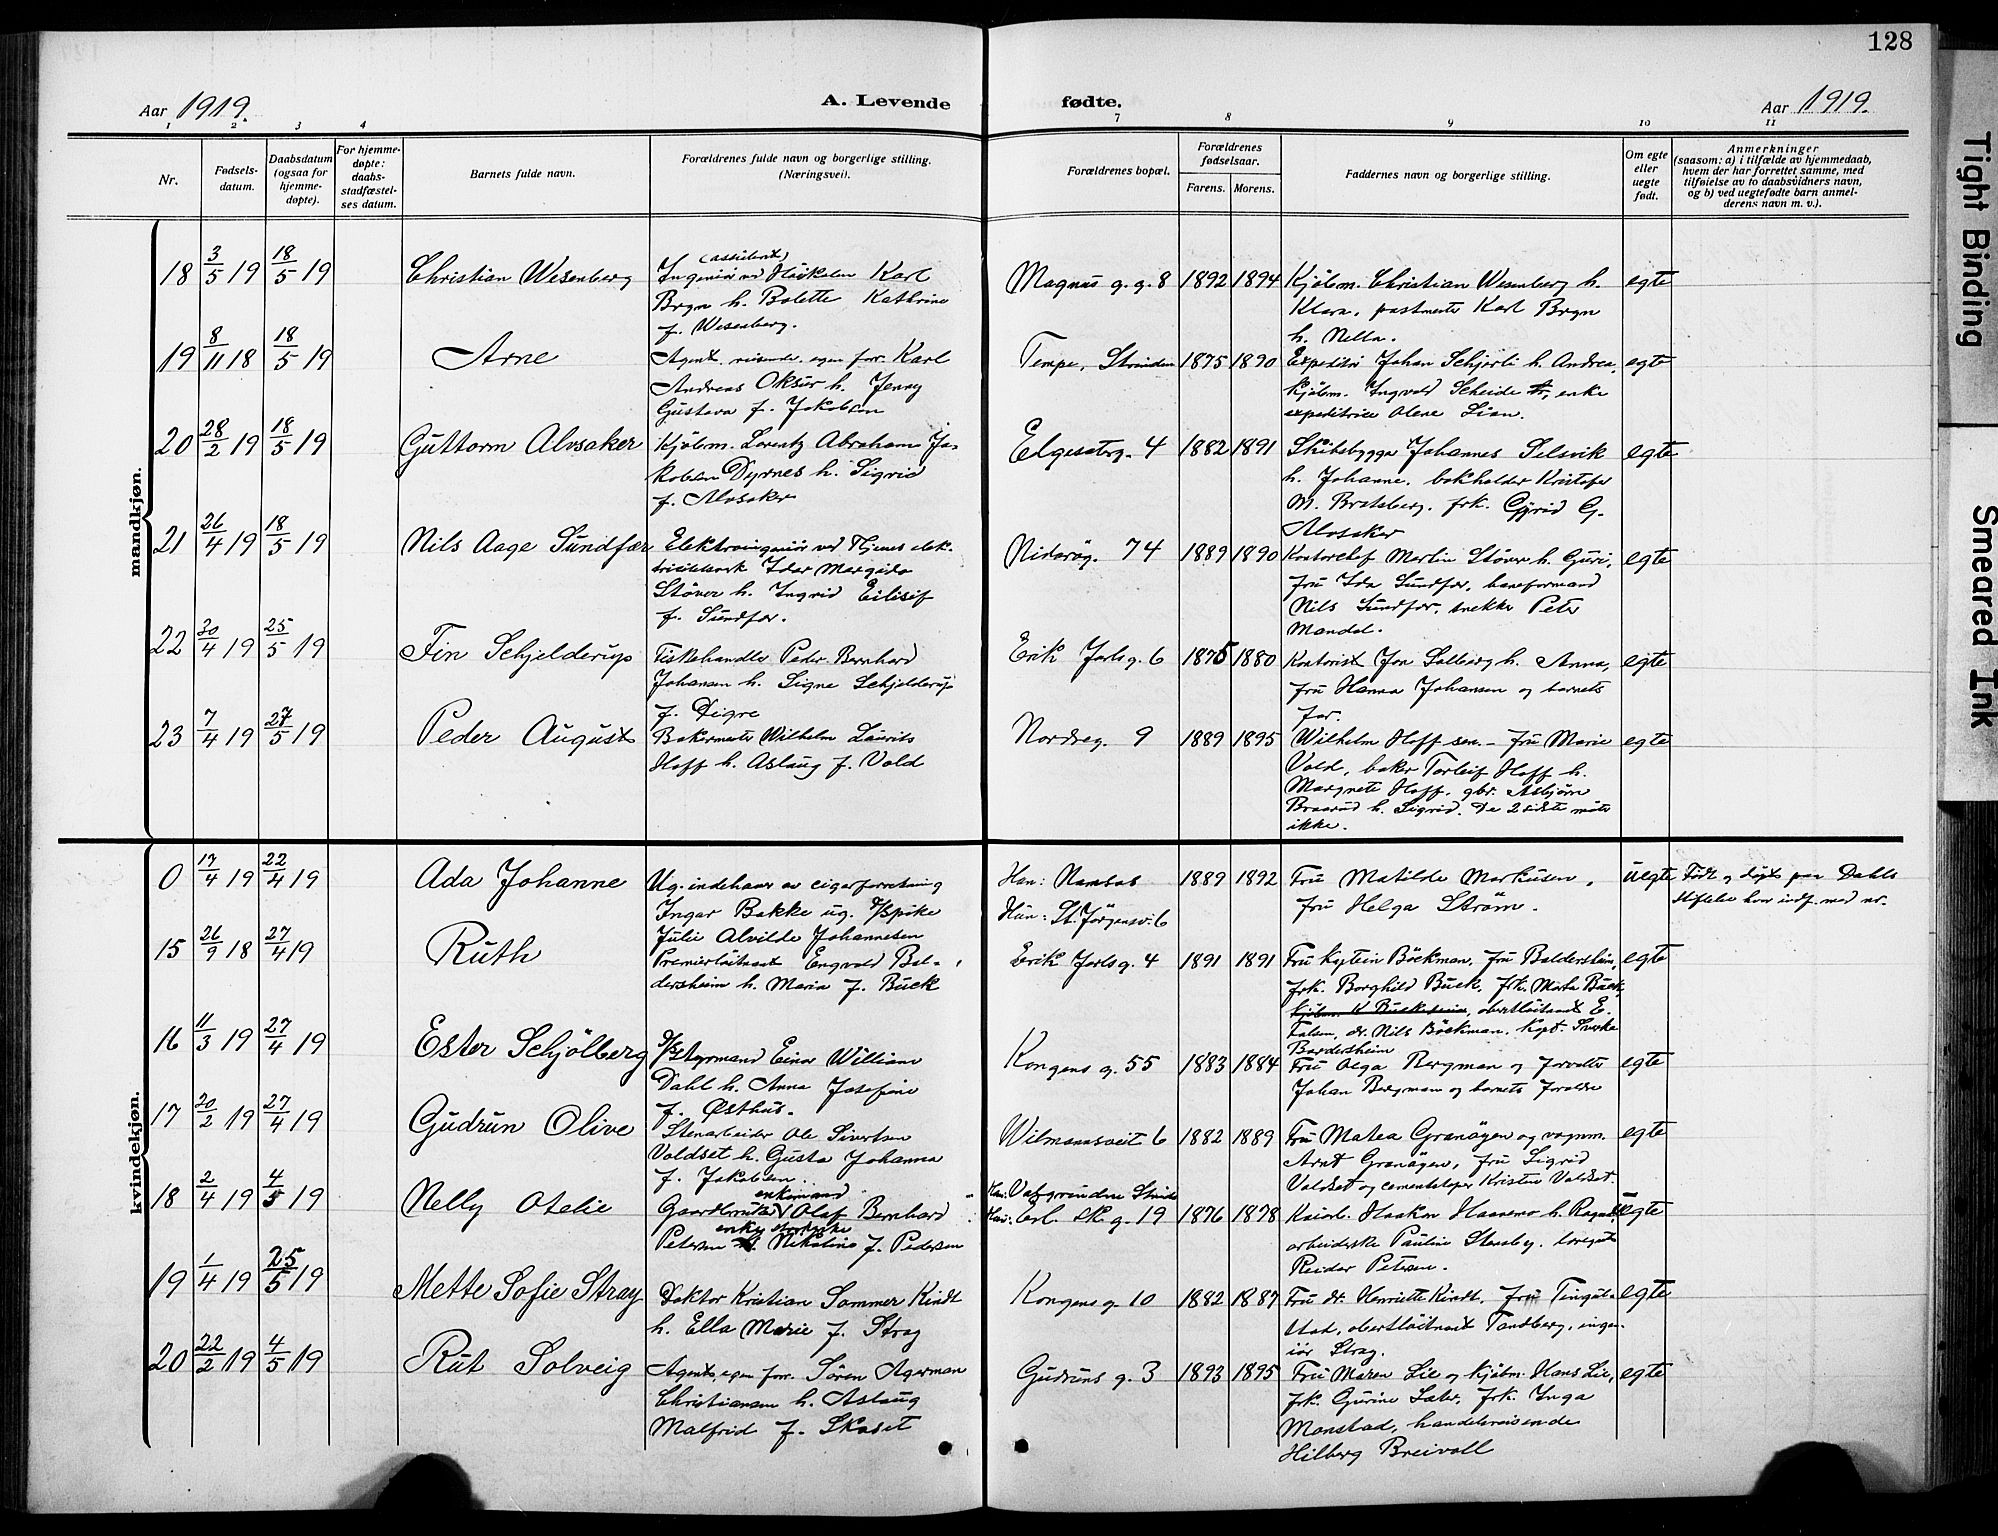 128
Aar 1919.
A. Levende fødte.
Aar 1919.
1 2 3 4 7 8 9 10 11
Nr.
Fødsels-
datum.
Daabsdatum
(ogsaa for
hjemme-
døpte).
For hjemme-
døpte:
daabs-
stadfæstel-
ses datum.
Barnets fulde navn.
Forældrenes fulde navn og borgerlige stilling.
(Næringsvei).
Forældrenes bopæl.
Forældrenes
fødselsaar.
Farens. Morens.
Faddernes navn og borgerlige stilling.
Om egte
eller
uegte
født.
Anmerkninger
(saasom: a) i tilfælde av hjemmedaab,
hvem der har forrettet samme, med
tilføielse av to daabsvidners navn,
og b) ved uegtefødte barn anmel-
derens navn m. v.).
mandkjøn.
18 3/5 19 18/5 19 Christian Wesenberg
(assistent)
Ingeniør ved Høiskolen Karl
Bryn h. Bolette Kathrine
f. Wesenberg.
Magnus g. g. 8 1892 1894
Kjøbm. Christian Wesenberg h.
Klara, postmester Karl Bryn
h. Nella.
egte
19 8/11 18 18/5 19 Arne
Agent, reisende, egen forr. Karl
Andreas Oksur h. Jenny
Gustava f. Jakobsen
Tempe, Strinden 1875 1890
Expeditør Johan Schjørli h. Andrea,
kjøbm. Ingvald Scheide, enke
expeditrice Olene Lian.
egte
20 28/2 19 18/5 19 Guttorm Alvsaker
Kjøbm. Lorentz Abraham Ja-
kobsen Dyrnes h. Sigrid
f. Alvsaker
Elgesaterg. 4 1882 1891
Skibsbygger Johannes Selsvik
h. Johanne, bokholder Kristofer
M. Bratsberg, frk. Gyrid G.
Alvsaker
egte
21 26/4 19 18/5 19 Nils Aage Sundfær
Elektroingeniør ved Thjems elek-
tricitetsverk Idar Margido
Støver h. Ingrid Eilisif
f. Sundfær.
Nidarøg. 74 1889 1890
Kontorchef Martin Støver h. Guri,
fru Ida Sundfær, baneformand
Nils Sundfær, snekker Peter
Mandal.
egte
22 30/4 19 25/5 19 Fin Schjelderup
Fiskehandler Peder Bernhard
Johansen h. Signe Schjelderup
f. Digre
Erik Jarlsg. 6 1875 1880
Kontorist Jon Solberg h. Anna,
fru Hanna Johansen og barnets
far.
egte
23 7/4 19 27/5 19 Peder August
Bakermester Wilhelm Laurits
Hoff h. Aslaug f. Vold
Nordreg. 9 1889 1895
Wilhelm Hoff sen. – Fru Marie
Vold, baker Torleif Hoff h.
Margrete Hoff, gbr. Asbjørn
Braarud h. Sigrid. De 2 sidste møtte
ikke.
egte
kvindekjøn.
0 17/4 19 22/4 19 Ada Johanne
Ug. indehaver av cigarforretning
Ingar Bakke ug.
Julie Alvilde Johannesen
Han: Namsos
Hun: St. Jørgensv. 6 1889 1892
Fru Matilde Markusen,
Fru Helga Strøm.
uegte
Født og døpt paa Dahls
stiftelse hvor indf. med nr.
15 26/9 18 27/4 19 Ruth
Premierløitnant Engvald Bal-
dersheim h. Maria f. Buck
Erik Jarlsg. 4 1891 1891
Fru Bøckman, Fru Baldersheim,
frk. Borghild Buck, frk. Marta Buck,
oberstløitnant E.
Falsen, dr. Nils Bøckman, Kapt. Sverke
Bardersheim
egte
16 11/3 19 27/4 19 Ester Schjølberg
Styrmand Einar William
Dahl h. Anna Josefine
f. Østhus.
Kongens g. 55 1883 1884
Fru Olga Bergman og forvalter
Johan Bergman og barnets forældre
egte
17 20/2 19 27/4 19 Gudrun Olive
Stenarbeider Ole Sivertsen
Voldset h. Gusta Johanna
f. Jakobsen.
Wilmannsveit 6 1882 1889
Fru Matea Granøyen og vognm.
Arnt Granøyen, fru Sigrid
Voldset og cementstøper Kristen Voldset.
egte
18 2/4 19 4/5 19 Nelly Otelie
enkemand
Olaf Bernhard
Petersen Nikoline f. Pedersen
Han: Strinda
Hun: Erl. sk. g. 19 1876 1878
Haakon Haanemo h. Ragna,
arbeiderske Pauline Stensberg,
Reidar Petersen.
uegte
19 1/4 19 25/5 19 Mette Sofie Stray
Doktor Kristian Sommer Kindt
h. Ella Marie f. Stray
Kongens g. 10 1882 1887
Fru dr. Henriette Kindt, Fru Tingul-
stad, oberstløitnant Tandberg, ingen-
iør Stray.
egte
20 22/2 19 4/5 19 Rut Solveig
Agent, egen forr. Søren Agerman
Christiansen h. Aslaug
Malfrid f. Skaset
Gudruns g. 3 1893 1895
Fru Maren Lie og kjøbm. Hans Lie,
frk. Gurine Sæter, frk. Inga
Monstad, handelsreisende
Hilberg Breivoll
egte
Tight Binding
Smeared Ink